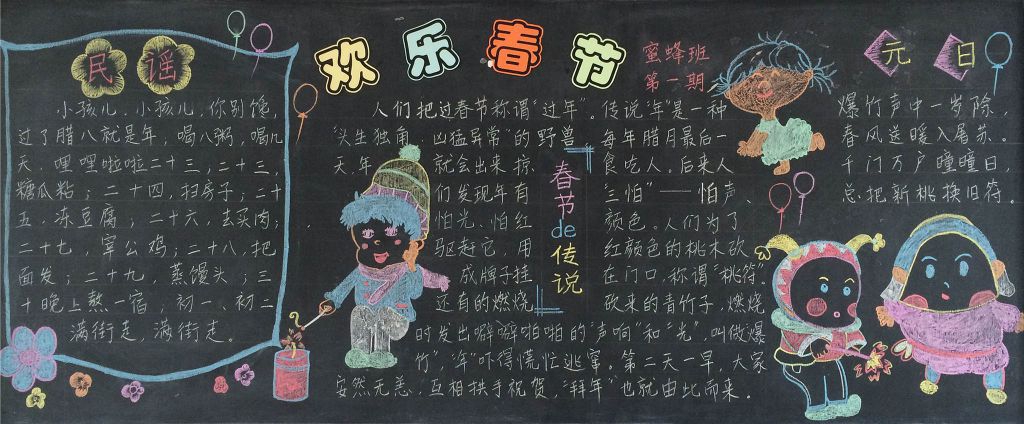 欢乐春节
蜜蜂班
第一期
民谣
小孩儿，小孩儿，你别馋，
过了腊八就是年，喝八粥，喝几
天，哩哩啦啦二十三；二十三，
糖瓜粘；二十四，扫房子；二十
五，冻豆腐；二十六，去买肉；
二十七，宰公鸡；二十八，把
面发；二十九，蒸馒头；三
十晚上熬一宿，初一、初二
满街走，满街走。
春节de传说
人们把过春节称谓“过年”。传说“年”是一种
“头生独角、凶猛异常”的野兽 每年腊月最后一
天，年 就会出来掠、食吃人。后来人
们发现年有 三怕”——怕声、
怕光、怕红 颜色。人们为了
驱赶它，用 红颜色的桃木砍
成牌子挂 在门口，称谓“桃符”
还有的燃烧 砍来的青竹子，燃烧
时发出噼噼啪啪的“声响”和“光”，叫做“爆
竹”，“年”吓得慌忙逃窜。第二天一早，大家
安然无恙，互相拱手祝贺，“拜年”也就由此而来。
元日
爆竹声中一岁除，
春风送暖入屠苏。
千门万户曈曈日，
总把新桃换旧符。